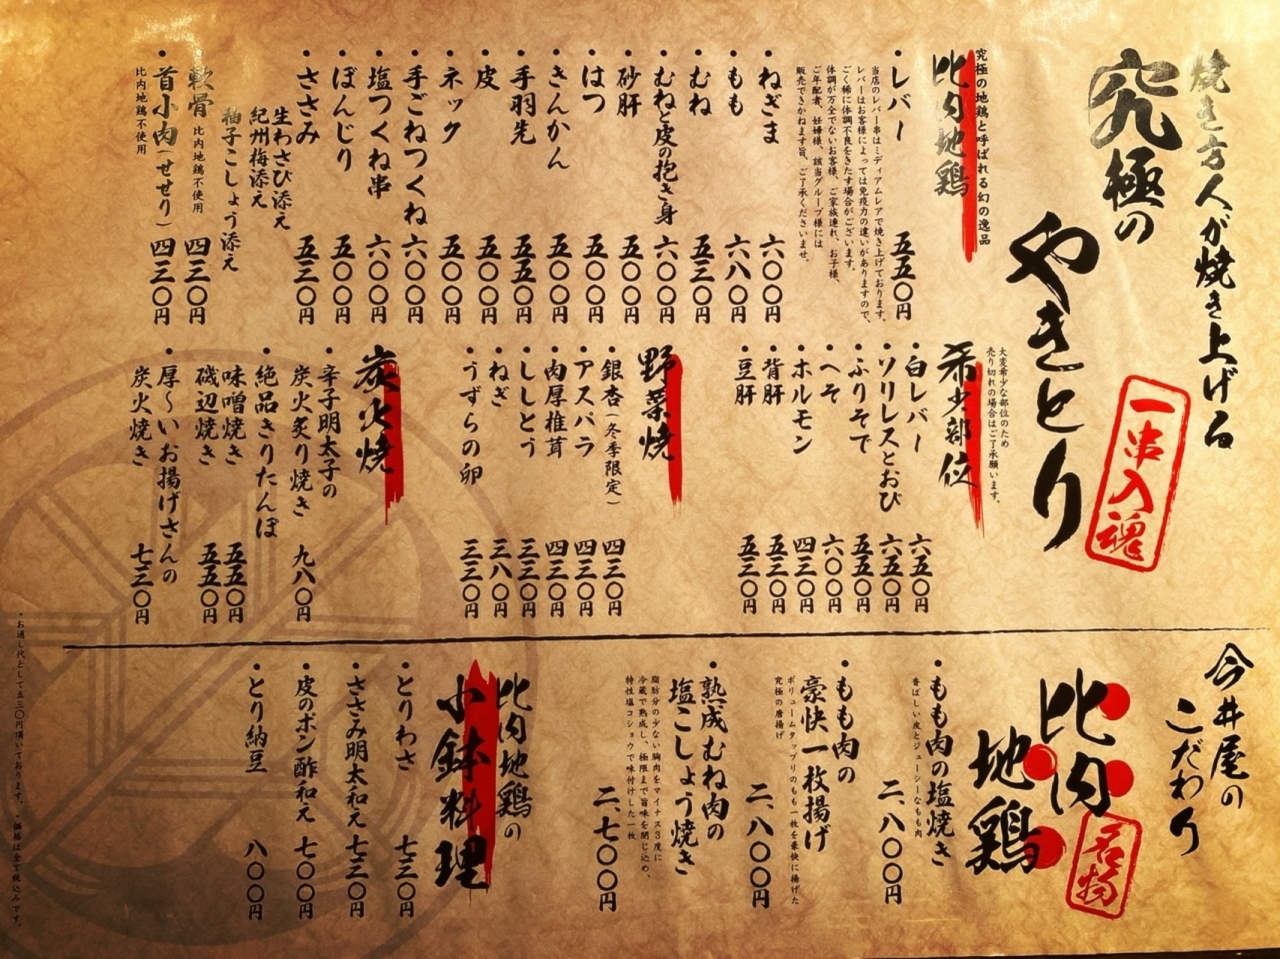 焼き方人が焼き上げる
究極の
やきとり
一串入魂
究極の地鶏と呼ばれる幻の逸品
比内地鶏
・レバー 五五〇円
当店のレバー串はミディアムレアで焼き上げております。
レバーはお客様によっては免疫力の違いがありますので、
ごく稀に体調不良をきたす場合がございます。
体調が万全でないお客様、ご家族連れ、お子様、
ご年配者、妊婦様、該当グループ様には
販売できかねます旨、ご了承くださいませ。
・ねぎま 六〇〇円
・もも 六八〇円
・むね 五三〇円
・むねと皮の抱き身 六〇〇円
・砂肝 五〇〇円
・はつ 五〇〇円
・きんかん 五〇〇円
・手羽先 五五〇円
・皮 五〇〇円
・ネック 五〇〇円
・手ごねつくね 六〇〇円
・塩つくね串 六〇〇円
・ぼんじり 五〇〇円
・ささみ 五三〇円
生わさび添え
紀州梅添え
柚子こしょう添え
・軟骨 比内地鶏不使用 四三〇円
・首小肉(せせり) 四三〇円
比内地鶏不使用
大変希少な部位のため
売り切れの場合はご了承願います。
希少部位
・白レバー 六五〇円
・ソリレスとおび 六五〇円
・ふりそで 五五〇円
・へそ 六〇〇円
・ホルモン 四三〇円
・背肝 五三〇円
・豆肝 五三〇円
野菜焼
・銀杏(冬季限定) 四三〇円
・アスパラ 四三〇円
・肉厚椎茸 四三〇円
・ししとう 三三〇円
・ねぎ 三八〇円
・うずらの卵 三三〇円
炭火焼
・辛子明太子の
炭火炙り焼き 九八〇円
・絶品きりたんぽ
味噌焼き 五五〇円
磯辺焼き 五五〇円
・厚〜いお揚げさんの
炭火焼き 七三〇円
今井屋の
こだわり
比内
地鶏
名物
・もも肉の塩焼き 二、八〇〇円
香ばしい皮とジューシーなもも肉
・もも肉の
豪快一枚揚げ 二、八〇〇円
ボリュームタップリのもも一枚を豪快に揚げた
究極の唐揚げ
・熟成むね肉の
塩こしょう焼き 二、七〇〇円
脂肪分の少ない胸肉をマイナス3度に
冷蔵で熟成し、極限まで旨味を閉じ込め、
特性塩コショウで味付けした一枚
比内地鶏の
小鉢料理
・とりわさ 七三〇円
・ささみ明太和え 七三〇円
・皮のポン酢和え 七〇〇円
・とり納豆 八〇〇円
・お通し代として五三〇円頂いております。・価格は全て税込みです。